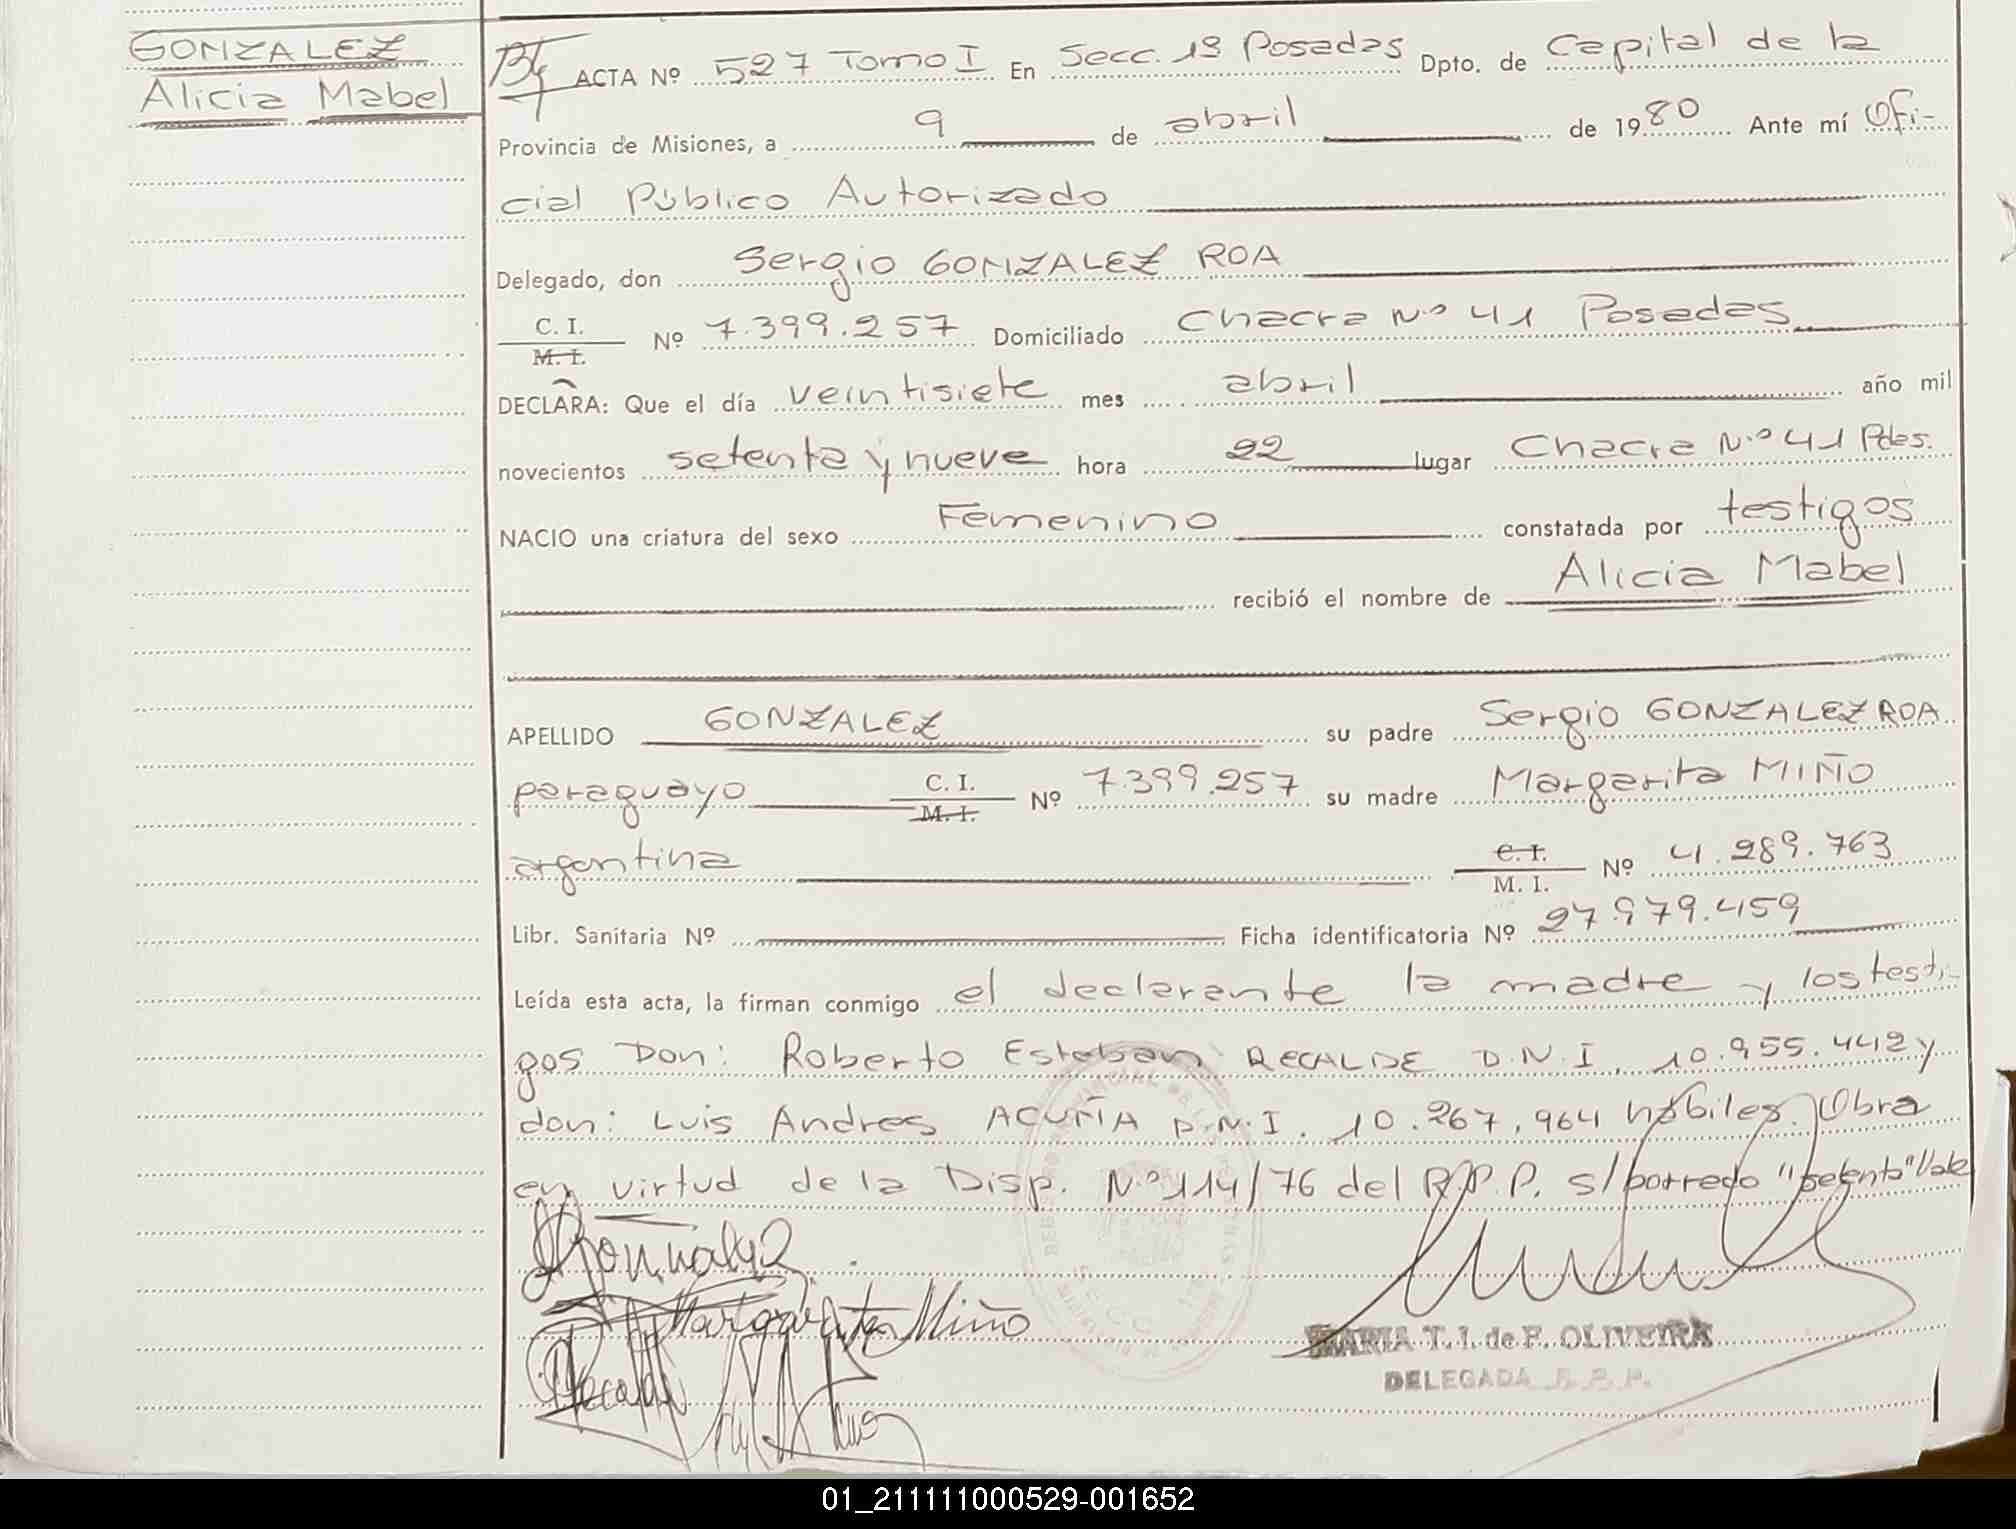 GONZALEZ
Alicia Mabel
ACTA Nº 527 Tomo I En Secc. 1ª Posadas Dpto. de Capital de la
Provincia de Misiones, a 9 de abril de 1980 Ante mí Ofi-
cial Público Autorizado
Delegado, don Sergio GONZALEZ ROA
C. I.
M. I.
Nº 7.399.257 Domiciliado Chacra Nº 41 Posadas
DECLARA: Que el día veintisiete mes abril año mil
novecientos setenta y nueve hora 22 lugar Chacra Nº 41 Pdas.
NACIO una criatura del sexo Femenino constatada por testigos
recibió el nombre de Alicia Mabel
APELLIDO GONZALEZ su padre Sergio GONZALEZ ROA
paraguayo C. I. M. I. Nº 7.399.257 su madre Margarita MIÑO
argentina C. I. M. I. Nº 4.289.763
Libr. Sanitaria Nº Ficha identificatoria Nº 27.979.459
Leída esta acta, la firman conmigo el declarante la madre y los testi-
gos Don: Roberto Esteban RECALDE D.N.I. 10.955.442 y
don: Luis Andres ACUÑA D.N.I. 10.267.964 hábiles. Obra
en virtud de la Disp. Nº 114/76 del R.P.P. s/borrado "setenta" Vale
Margarita Miño
MARIA T. I. de F. OLIVEIRA
DELEGADA R.P.P.
01_211111000529-001652